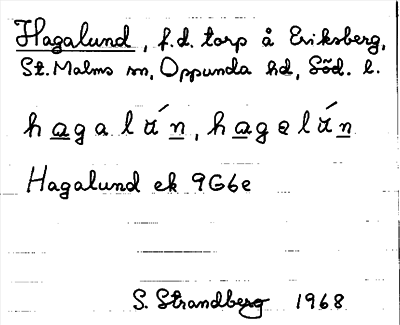 Hagalund, f.d. torp å Eriksberg,
St. Malms sn, Oppunda hd, Söd. l.
hagalún, hagəlún
Hagalund ek 9G6e
S. Strandberg 1968